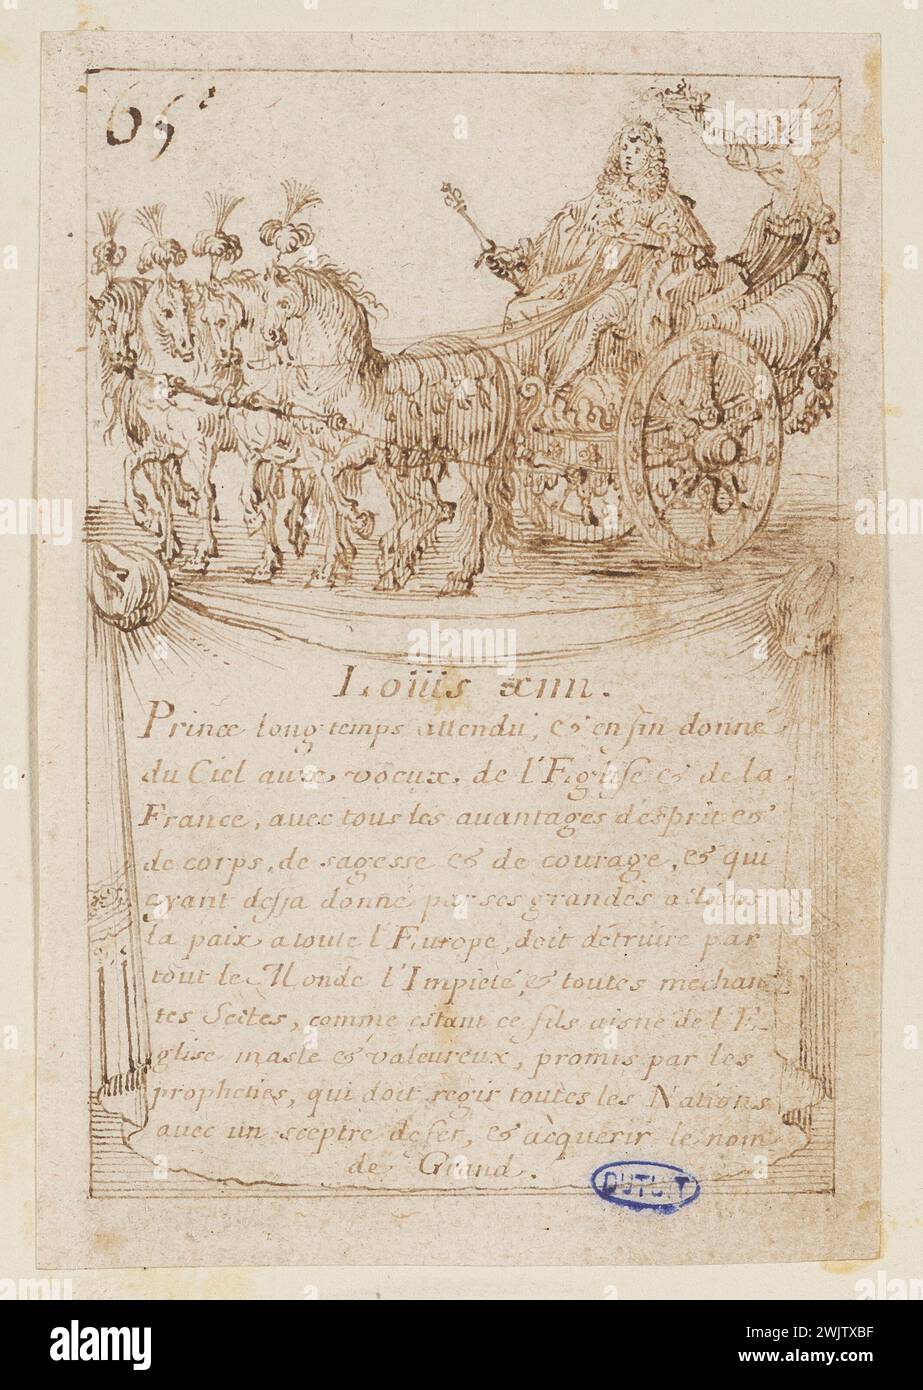 65e
Loüis xiiii.
Prince long temps attendu, & enfin donné
du Ciel aux voeux de l'Eglise & de la
France, avec tous les avantages d'esprit &
de corps, de sagesse & de courage, & qui
ayant dessa donné par ses grandes actions
la paix a toute l'Europe, doit détruire par
tout le Monde l'Impieté & toutes mechan
tes Sectes, comme estant ce fils aisné de l'E-
glise masle & valeureux, promis par les
propheties, qui doit regir toutes les Nations
avec un sceptre de fer, & acquerir le nom
de Grand.
DUTUIT
alamy
Image ID: 2WJTXBF
www.alamy.com